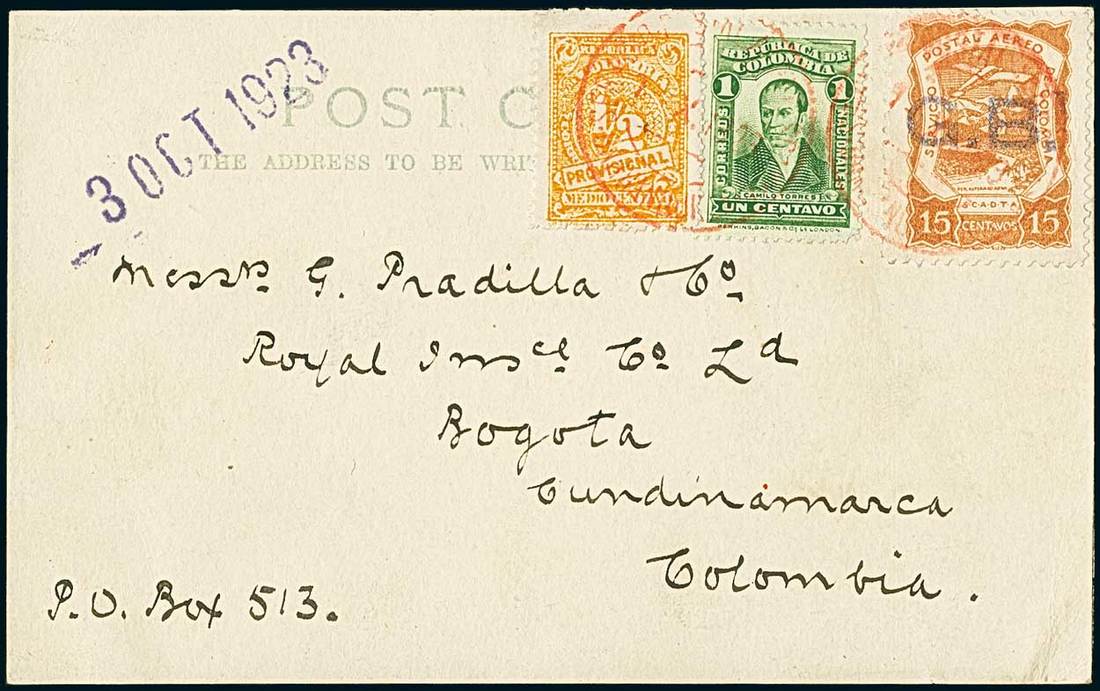 - 3 OCT 1923
POST C
THE ADDRESS TO BE WRI
REPUBLICA
COLOMBIA
1/2
PROVISIONAL
MEDIO CENTAVO
REPUBLICA DE
COLOMBIA
1 1
CORREOS
NACIONALES
CAMILO TORRES
UN CENTAVO
PERKINS, BACON & Co Ld LONDON
POSTAL AEREO
SERVICIO
COLOMBIA
G.B
S.C.A.D.T.A.
15 CENTAVOS 15
Messrs G. Pradilla & Co.
Royal Insce Co. Ld
Bogota
Cundinamarca
Colombia.
P.O. Box 513.